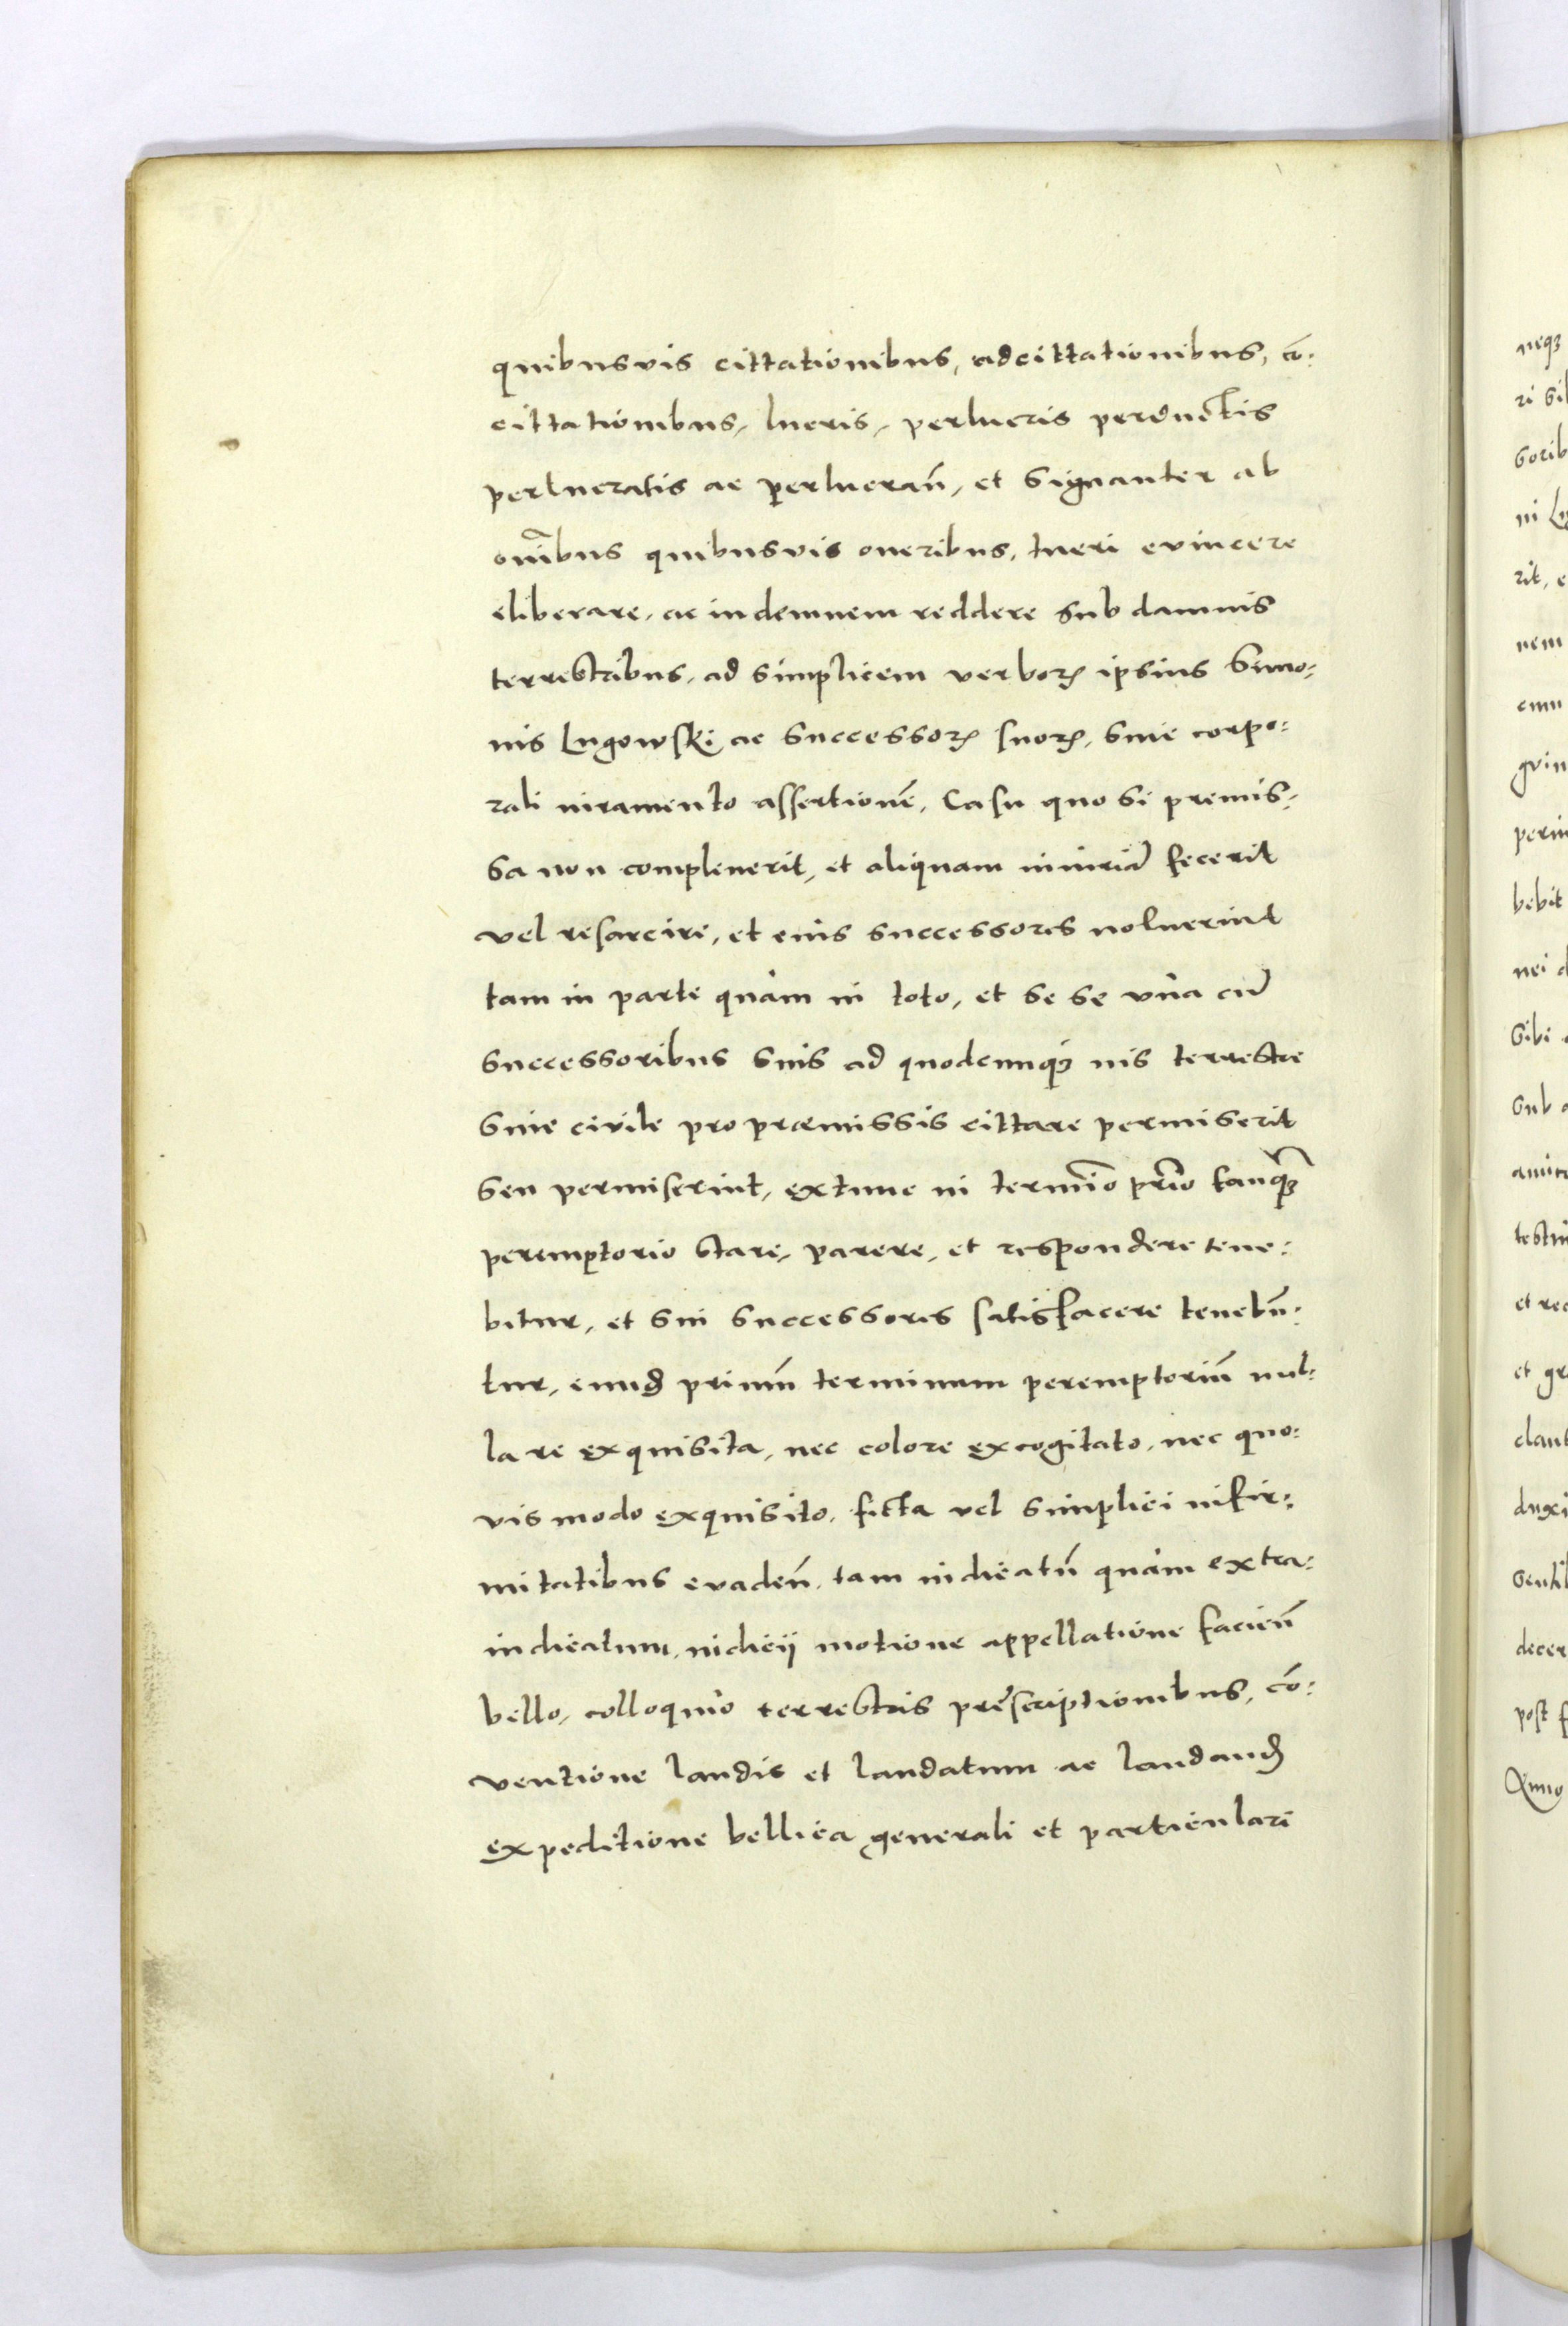 quibusvis cittationibus, adcittationibus, cō:
cittationibus, lucris, perlucris perductis
perlucratis ac perlucrañ, et signanter ab
oñibus quibusvis oneribus, tueri evincere
eliberare, ac indemnem reddere sub damnis
terrestribus, ad simplicem verborꝝ ipsius Simo:
nis Lugowski ac successorꝝ suorꝝ, sine corpo:
rali iuramento assertionē, Casu quo si premis:
sa non complenerit, et aliquam iniuriā fecerit
vel resarcire, et eius successores noluerint
tam in parte quàm in toto, et se se vnà cū
successoribus suis ad quodcunqꝫ ius terrestre
siue civile pro præmissis cittare permiserit
seu permiserint, extunc in termīo prīo tanqꝫ
peremptorio stare, parere, et respondere tene:
bitur, et sui successores satisfacere tenebū:
tur, eundꝫ primū terminum peremptoriū nul:
la re exquisita, nec colore excogitato, nec quo:
vis modo exquisito, ficta vel simplici infir:
mitatibus evadeñ, tam iudicatū quàm extra:
iudicatum, iudicij motione appellatione facieñ
bello, colloquio terrestris prescriptionibus, cō:
ventione laudis et laudatum ac laudandꝫ
expeditione bellica generali et particulari
neqꝫ
ri si
sorib
ni Lu
rit, e
nem
cum
perin
bebit
nei d
sibi
sub
amic
testi
et rec
et gr
claus
duxi
decer
post f
Anno